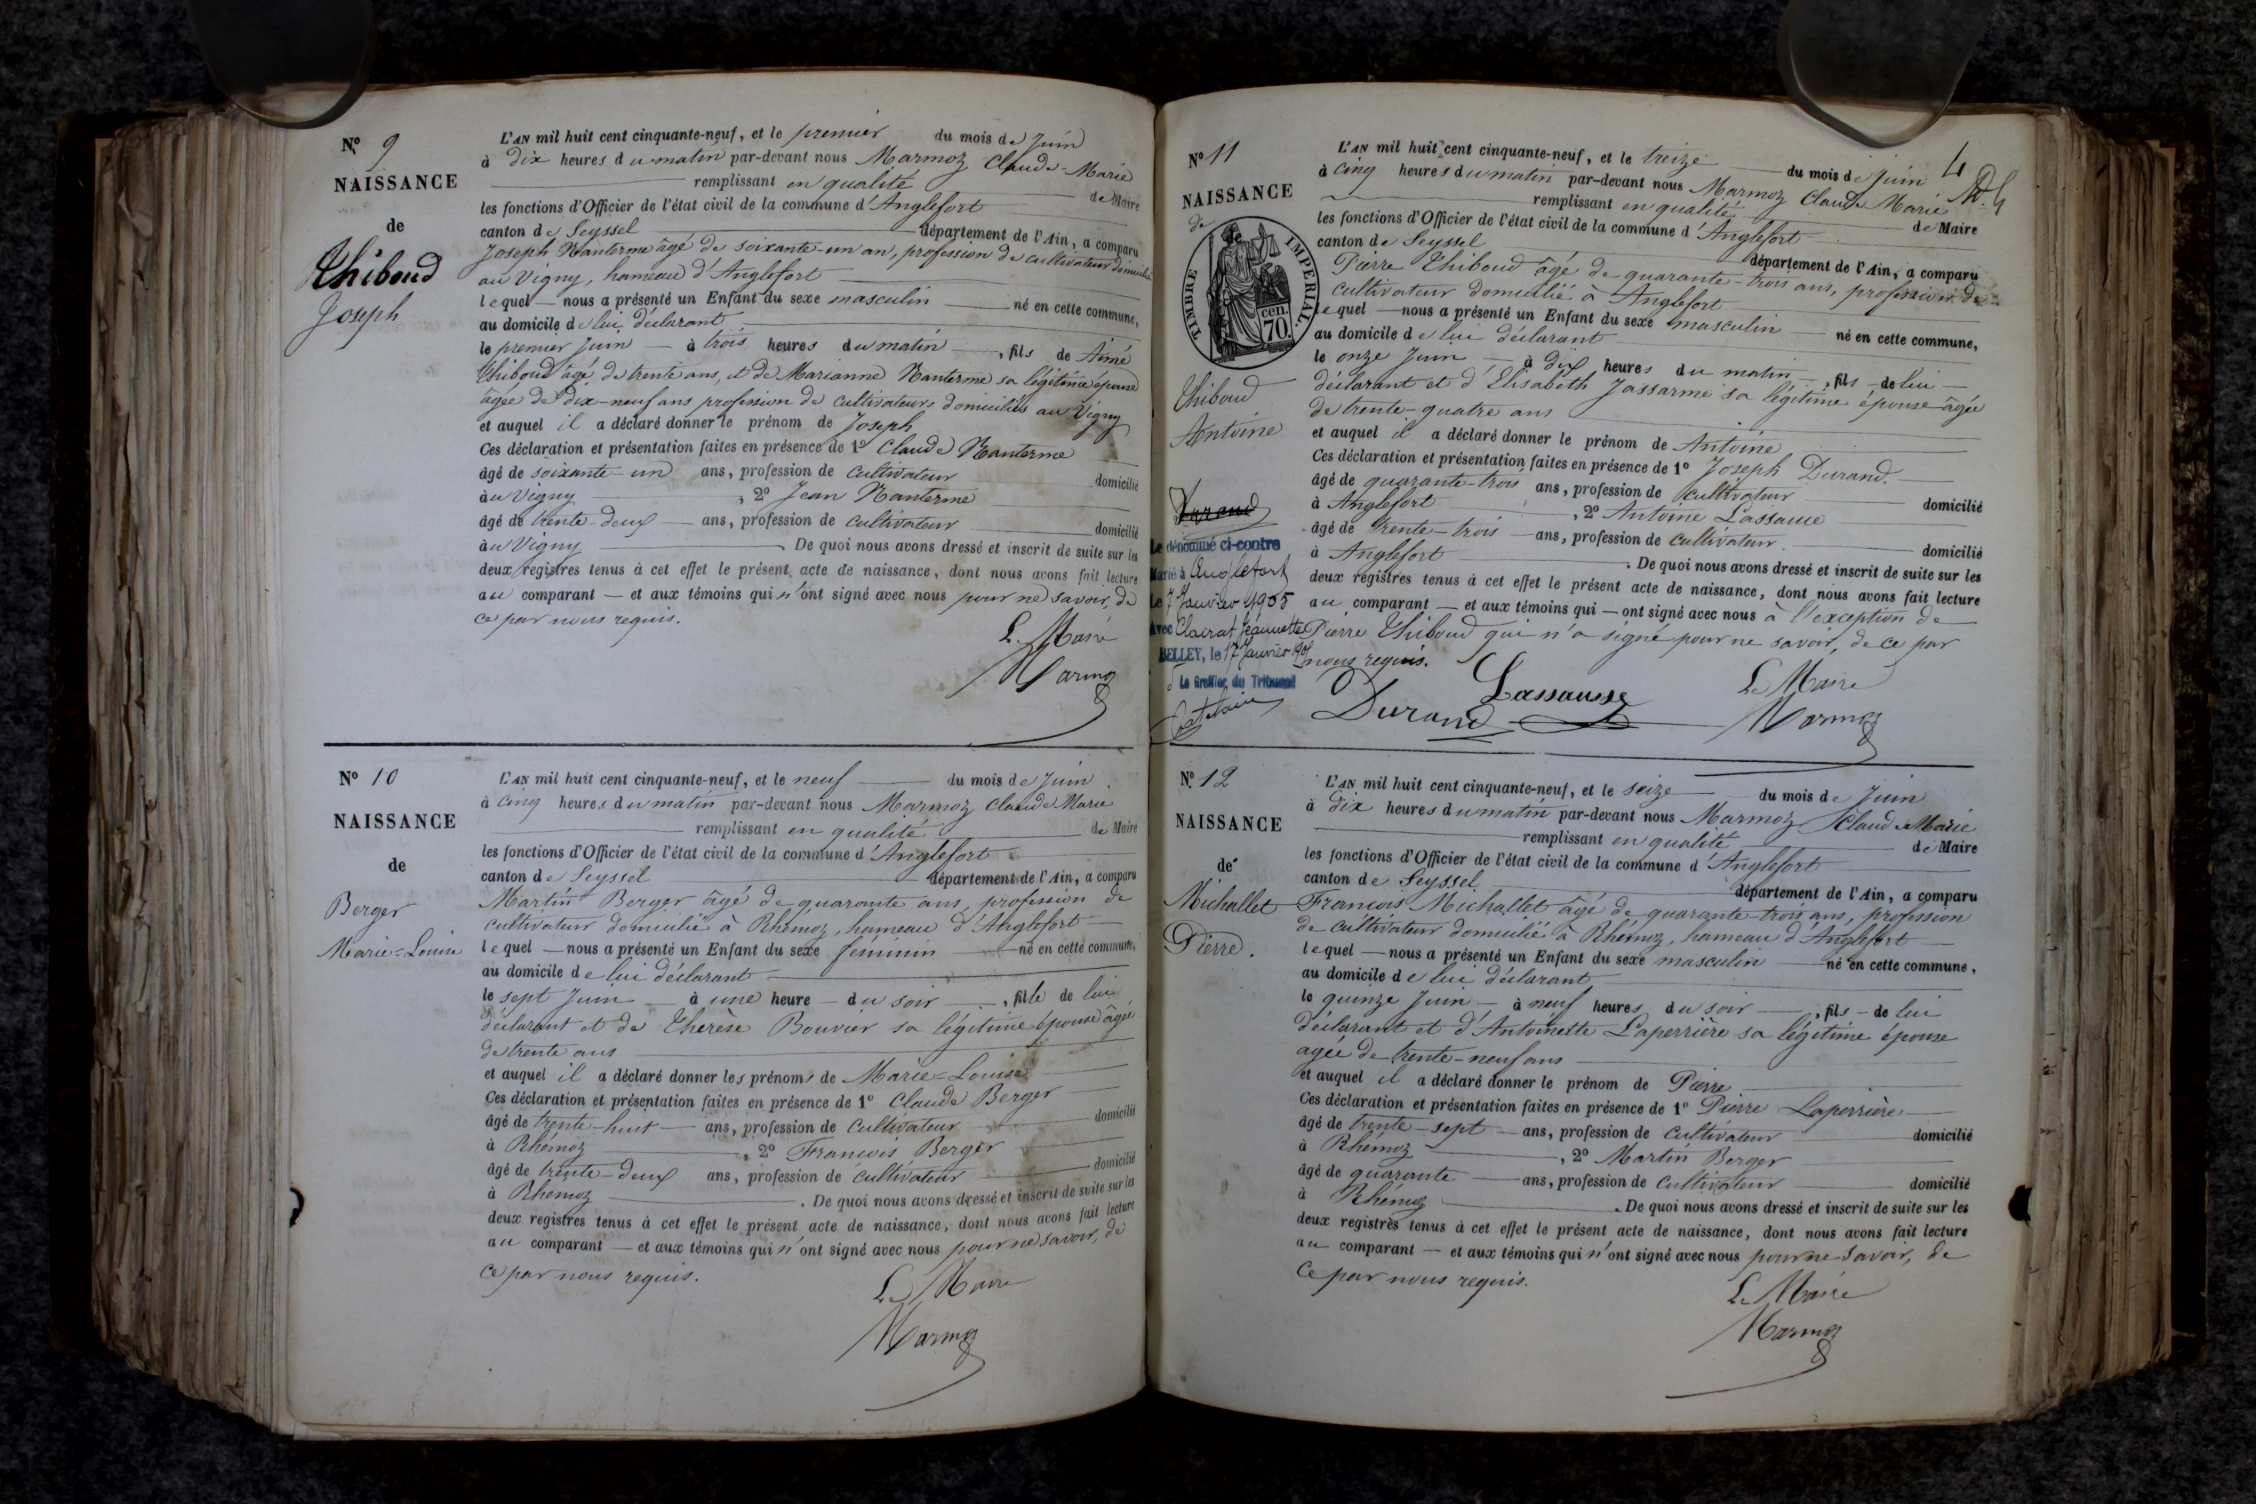 N° 9
NAISSANCE
de
Thiboud
Joseph
L'AN mil huit cent cinquante-neuf, et le premier du mois de Juin
à dix heures du matin par-devant nous Marmoz Claude-Marie
remplissant en qualité de Maire
les fonctions d'Officier de l'état civil de la commune d'Anglefort
canton de Seyssel département de l'Ain, a comparu
Joseph Nanterme âgé de soixante-un an, profession de cultivateur domicilié
au Vigny, hameau d'Anglefort
lequel nous a présenté un Enfant du sexe masculin né en cette commune,
au domicile de lui déclarant
le premier Juin à trois heures du matin, fils de Aimé
Thiboud âgé de trente ans, et de Marianne Nanterme sa légitime épouse
âgée de dix-neuf ans profession de cultivateurs domiciliés au Vigny
et auquel il a déclaré donner le prénom de Joseph
Ces déclaration et présentation faites en présence de 1° Claude Nanterme
âgé de soixante-un ans, profession de cultivateur domicilié
au Vigny, 2° Jean Nanterme
âgé de trente-deux ans, profession de cultivateur domicilié
au Vigny De quoi nous avons dressé et inscrit de suite sur les
deux registres tenus à cet effet le présent acte de naissance, dont nous avons fait lecture
au comparant et aux témoins qui n'ont signé avec nous pour ne savoir, de
ce par nous requis.
Le Maire
Marmoz
N° 10
NAISSANCE
de
Berger
Marie=Louise
L'AN mil huit cent cinquante-neuf, et le neuf du mois de Juin
à cinq heures du matin par-devant nous Marmoz Claude Marie
remplissant en qualité de Maire
les fonctions d'Officier de l'état civil de la commune d'Anglefort
canton de Seyssel département de l'Ain, a comparu
Martin Berger âgé de quarante ans, profession de
cultivateur domicilié à Rhémoz, hameau d'Anglefort
lequel nous a présenté un Enfant du sexe féminin né en cette commune,
au domicile de lui déclarant
le sept Juin à une heure du soir, fille de lui
déclarant et de Thérèse Bouvier sa légitime épouse âgée
de trente ans
et auquel il a déclaré donner les prénoms de Marie=Louise
Ces déclaration et présentation faites en présence de 1° Claude Berger
âgé de trente-huit ans, profession de cultivateur domicilié
à Rhémoz, 2° François Berger
âgé de trente-deux ans, profession de cultivateur domicilié
à Rhémoz. De quoi nous avons dressé et inscrit de suite sur les
deux registres tenus à cet effet le présent acte de naissance, dont nous avons fait lecture
au comparant et aux témoins qui n'ont signé avec nous pour ne savoir, de
ce par nous requis.
Le Maire
Marmoz
4
N° 11
NAISSANCE
de
TIMBRE IMPÉRIAL.
cen.
70.
Thiboud
Antoine
Durand
Le dénommé ci-contre
Marié à Anglefort
Le 7 Janvier 1905
Avec Clairat Jeannette
BELLEY, le 17 Janvier 1905
Le Greffier du Tribunal
L'AN mil huit cent cinquante-neuf, et le treize du mois de Juin
à cinq heures du matin par-devant nous Marmoz Claude Marie
remplissant en qualité de Maire
les fonctions d'Officier de l'état civil de la commune d'Anglefort
canton de Seyssel département de l'Ain, a comparu
Pierre Thiboud âgé de quarante-trois ans, profession de
cultivateur domicilié à Anglefort
lequel nous a présenté un Enfant du sexe masculin né en cette commune,
au domicile de lui déclarant
le onze Juin à dix heures du matin, fils de lui
déclarant et d'Elisabeth Jassarme sa légitime épouse âgée
de trente-quatre ans
et auquel il a déclaré donner le prénom de Antoine
Ces déclaration et présentation faites en présence de 1° Joseph Durand.
âgé de quarante-trois ans, profession de cultivateur domicilié
à Anglefort, 2° Antoine Lassausse
âgé de trente-trois ans, profession de cultivateur. domicilié
à Anglefort. De quoi nous avons dressé et inscrit de suite sur les
deux registres tenus à cet effet le présent acte de naissance, dont nous avons fait lecture
au comparant et aux témoins qui ont signé avec nous à l'exception de
Pierre Thiboud qui n'a signé pour ne savoir, de ce par
nous requis.
Durand Lassausse Le Maire
Marmoz
N° 12
NAISSANCE
de
Michallet
Pierre.
L'AN mil huit cent cinquante-neuf, et le seize du mois de Juin
à dix heures du matin par-devant nous Marmoz Claude Marie
remplissant en qualité de Maire
les fonctions d'Officier de l'état civil de la commune d'Anglefort
canton de Seyssel département de l'Ain, a comparu
François Michallet âgé de quarante-trois ans, profession
de cultivateur domicilié à Rhémoz, hameau d'Anglefort
lequel nous a présenté un Enfant du sexe masculin né en cette commune,
au domicile de lui déclarant
le quinze Juin à neuf heures du soir, fils de lui
déclarant et d'Antoinette Laperrière sa légitime épouse
agée de trente-neuf ans
et auquel il a déclaré donner le prénom de Pierre
Ces déclaration et présentation faites en présence de 1° Pierre Laperrière
âgé de trente-sept ans, profession de cultivateur domicilié
à Rhémoz, 2° Martin Berger
âgé de quarante ans, profession de cultivateur domicilié
à Rhémoz. De quoi nous avons dressé et inscrit de suite sur les
deux registres tenus à cet effet le présent acte de naissance, dont nous avons fait lecture
au comparant et aux témoins qui n'ont signé avec nous pour ne savoir, de
ce par nous requis.
Le Maire
Marmoz